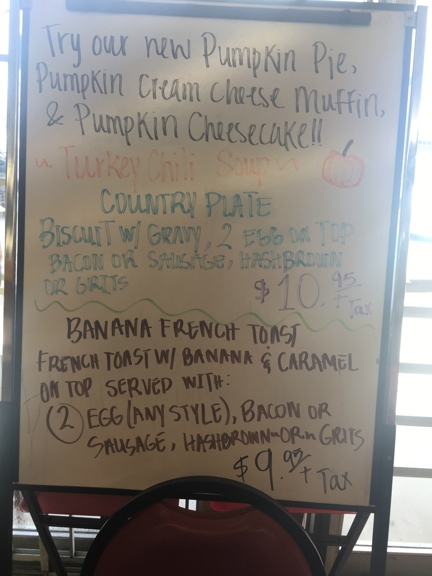 Try our new Pumpkin Pie,
Pumpkin Cream Cheese Muffin,
& Pumpkin Cheesecake!!
~ Turkey Chili Soup ~
COUNTRY PLATE
BISCUIT W/ GRAVY, 2 EGG ON TOP
BACON OR SAUSAGE, HASHBROWN
OR GRITS
$10.95 + Tax
BANANA FRENCH TOAST
FRENCH TOAST W/ BANANA & CARAMEL
ON TOP SERVED WITH:
(2) EGG (ANY STYLE), BACON OR
SAUSAGE, HASHBROWN~OR~GRITS
$9.95 + Tax